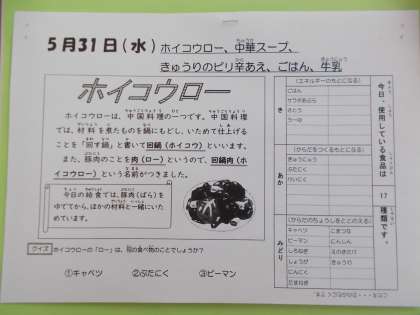 5月31日(水) ホイコウロー、中華スープ、
きゅうりのピリ辛あえ、ごはん、牛乳
ホイコウロー
ホイコウローは、中国料理の一つです。中国料理
では、材料を煮たものを鍋にもどし、いためて仕上げる
ことを「回す鍋」と書いて回鍋(ホイコウ)といいます。
また、豚肉のことを肉(ロー)というので、回鍋肉(ホ
イコウロー)という名前がつきました。
今日の給食では、豚肉(ばら)を
ゆでてから、ほかの材料と一緒にいた
めています。
クイズ ホイコウローの「ロー」は、何の食べ物のことでしょうか?
①キャベツ ②ぶたにく ③ピーマン
今日、使用している食品は 17 種類です。
き
(エネルギーのもとになる)
ごはん
サラダあぶら
さとう
ラーゆ
あか
(からだをつくるもとになる)
ぎゅうにゅう
ぶたにく
けいにく
みどり
(からだのちょうしをととのえる)
キャベツ こまつな
ピーマン にんじん
しろねぎ えのきたけ
しょうが きゅうり
にんにく
たまねぎ